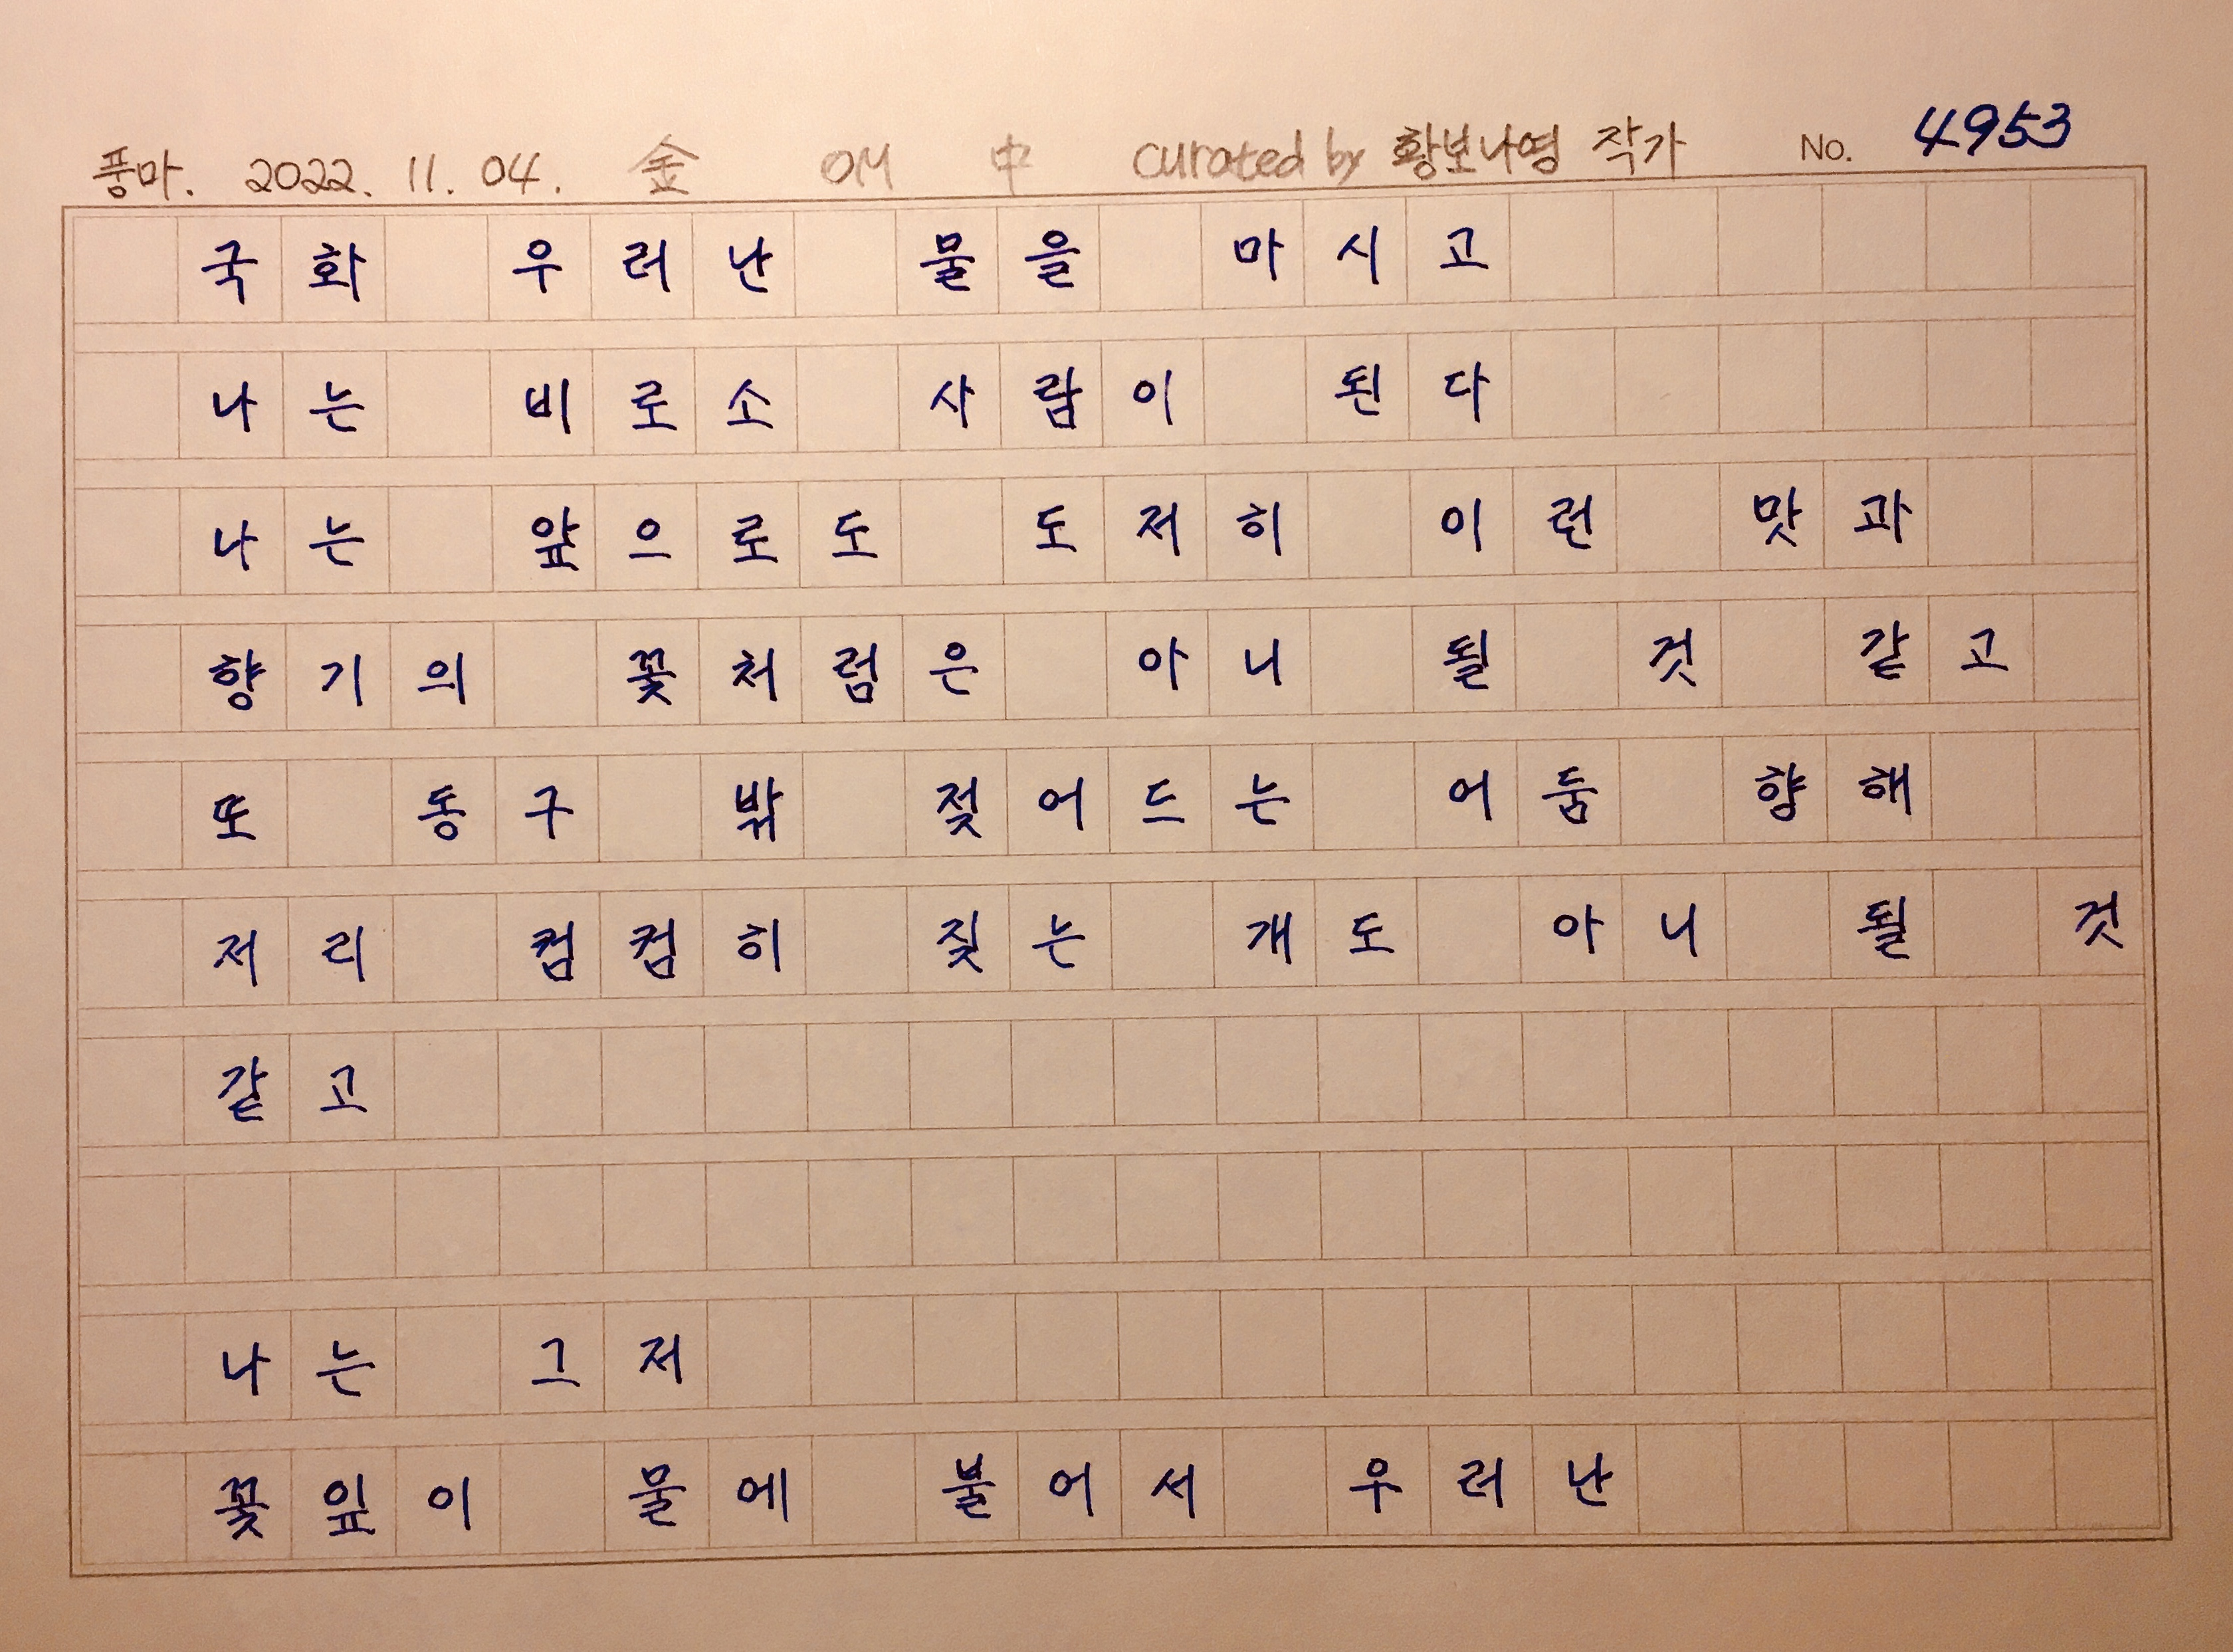 풍마. 2022. 11. 04. 金 OM 中 curated by 황보나영 작가 No. 4953
국화 우러난 물을 마시고
나는 비로소 사람이 된다
나는 앞으로도 도저히 이런 맛과
향기의 꽃처럼은 아니 될 것 같고
또 동구 밖 젖어드는 어둠 향해
저리 컴컴히 짖는 개도 아니 될 것
같고
나는 그저
꽃잎이 물에 불어서 우러난